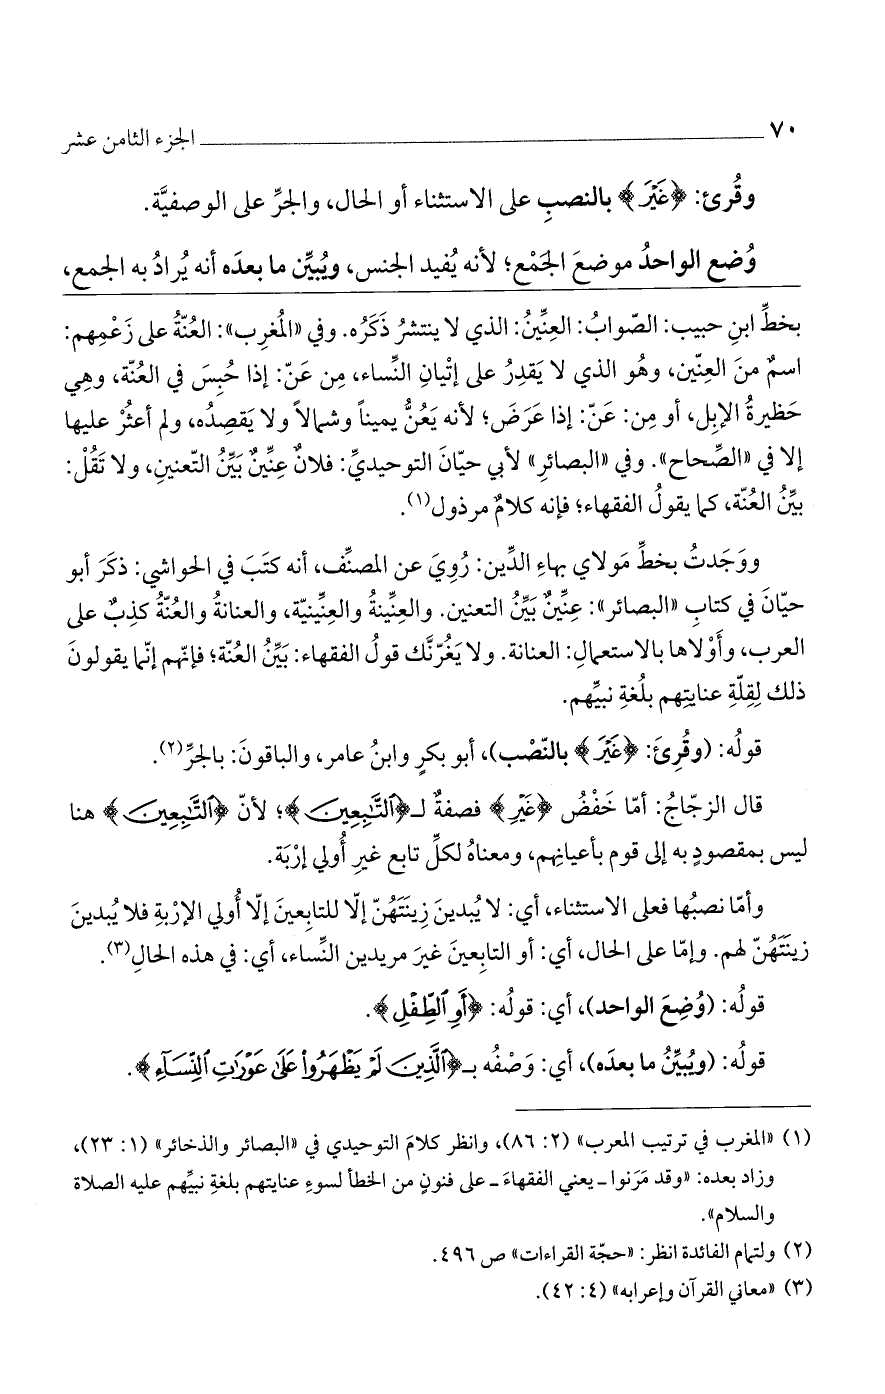 ٧٠ الجزء الثامن عشر
وقُرئ: ﴿غَيْرَ﴾ بالنصبِ على الاستثناء أو الحال، والجرِّ على الوصفيَّة.
وُضع الواحدُ موضعَ الجَمْع؛ لأنه يُفيد الجنس، ويُبيِّن ما بعدَه أنه يُرادُ به الجمع،
بخطِّ ابنِ حبيب: الصّوابُ: العِنِّينُ: الذي لا ينتشرُ ذَكَرُه. وفي «المُغرِب»: العُنّةُ على زَعْمِهم:
اسمٌ منَ العِنّين، وهُو الذي لا يَقدِرُ على إتْيانِ النِّساء، مِن عَنّ: إذا حُبِسَ في العُنّة، وهِي
حَظيرةُ الإبِل، أو مِن: عَنّ: إذا عَرَضَ؛ لأنه يَعُنُّ يميناً وشمالاً ولا يَقصِدُه، ولم أعثُرْ عليها
إلا في «الصِّحاح». وفي «البصائرِ» لأبي حيّانَ التوحيديِّ: فلانٌ عِنِّينٌ بَيِّنُ التّعنين، ولا تَقُلْ:
بيِّنُ العُنّة، كما يقولُ الفقهاء؛ فإنه كلامٌ مرذول(١).
ووَجَدتُ بخطِّ مَولاي بهاءِ الدِّين: رُوِيَ عن المصنِّف، أنه كتَبَ في الحواشي: ذكَرَ أبو
حيّانَ في كتابِ «البصائر»: عِنِّينٌ بَيِّنُ التعنين. والعِنِّينةُ والعِنِّينيّة، والعنانةُ والعُنّةُ كذِبٌ على
العرب، وأَوْلاها بالاستعمالِ: العنانة. ولا يَغُرّنَّك قولُ الفقهاء: بَيِّنُ العُنّة؛ فإنّهم إنّما يقولونَ
ذلك لِقِلّةِ عنايتِهم بلُغةِ نبيِّهم.
قولُه: (وقُرِئَ: ﴿غَيْرَ﴾ بالنّصْب)، أبو بكرٍ وابنُ عامر، والباقونَ: بالجرِّ(٢).
قال الزجّاجُ: أمّا خَفْضُ ﴿غَيْرِ﴾ فصفةٌ لـ﴿ٱلتَّٰبِعِينَ﴾؛ لأنّ ﴿ٱلتَّٰبِعِينَ﴾ هنا
ليس بمقصودٍ به إلى قوم بأعيانِهم، ومعناهُ لكلِّ تابع غيرِ أُولي إرْبَة.
وأمّا نصبُها فعلى الاستثناء، أي: لا يُبدينَ زِينَتَهُنّ إلّا للتابعينَ إلّا أُولي الإرْبةِ فلا يُبدينَ
زينَتَهُنّ لهم. وإمّا على الحال، أي: أو التابِعينَ غيرَ مريدين النِّساء، أي: في هذه الحال(٣).
قولُه: (وُضِعَ الواحد)، أي: قولُه: ﴿أَوِ ٱلطِّفْلِ﴾.
قولُه: (ويُبيِّنُ ما بعدَه)، أي: وَصْفُه بـ﴿ٱلَّذِينَ لَمْ يَظْهَرُواْ عَلَىٰ عَوْرَٰتِ ٱلنِّسَآءِ﴾.
(١) «المغرب في ترتيب المعرب» (٢: ٨٦)، وانظر كلامَ التوحيدي في «البصائر والذخائر» (١: ٢٣)،
وزاد بعده: «وقد مَرَنوا ـ يعني الفقهاءَ ـ على فنونٍ من الخطأ لسوءِ عنايتهم بلغةِ نبيِّهم عليه الصلاة
والسلام».
(٢) ولتمام الفائدة انظر: «حجّة القراءات» ص ٤٩٦.
(٣) «معاني القرآن وإعرابه» (٤: ٤٢).